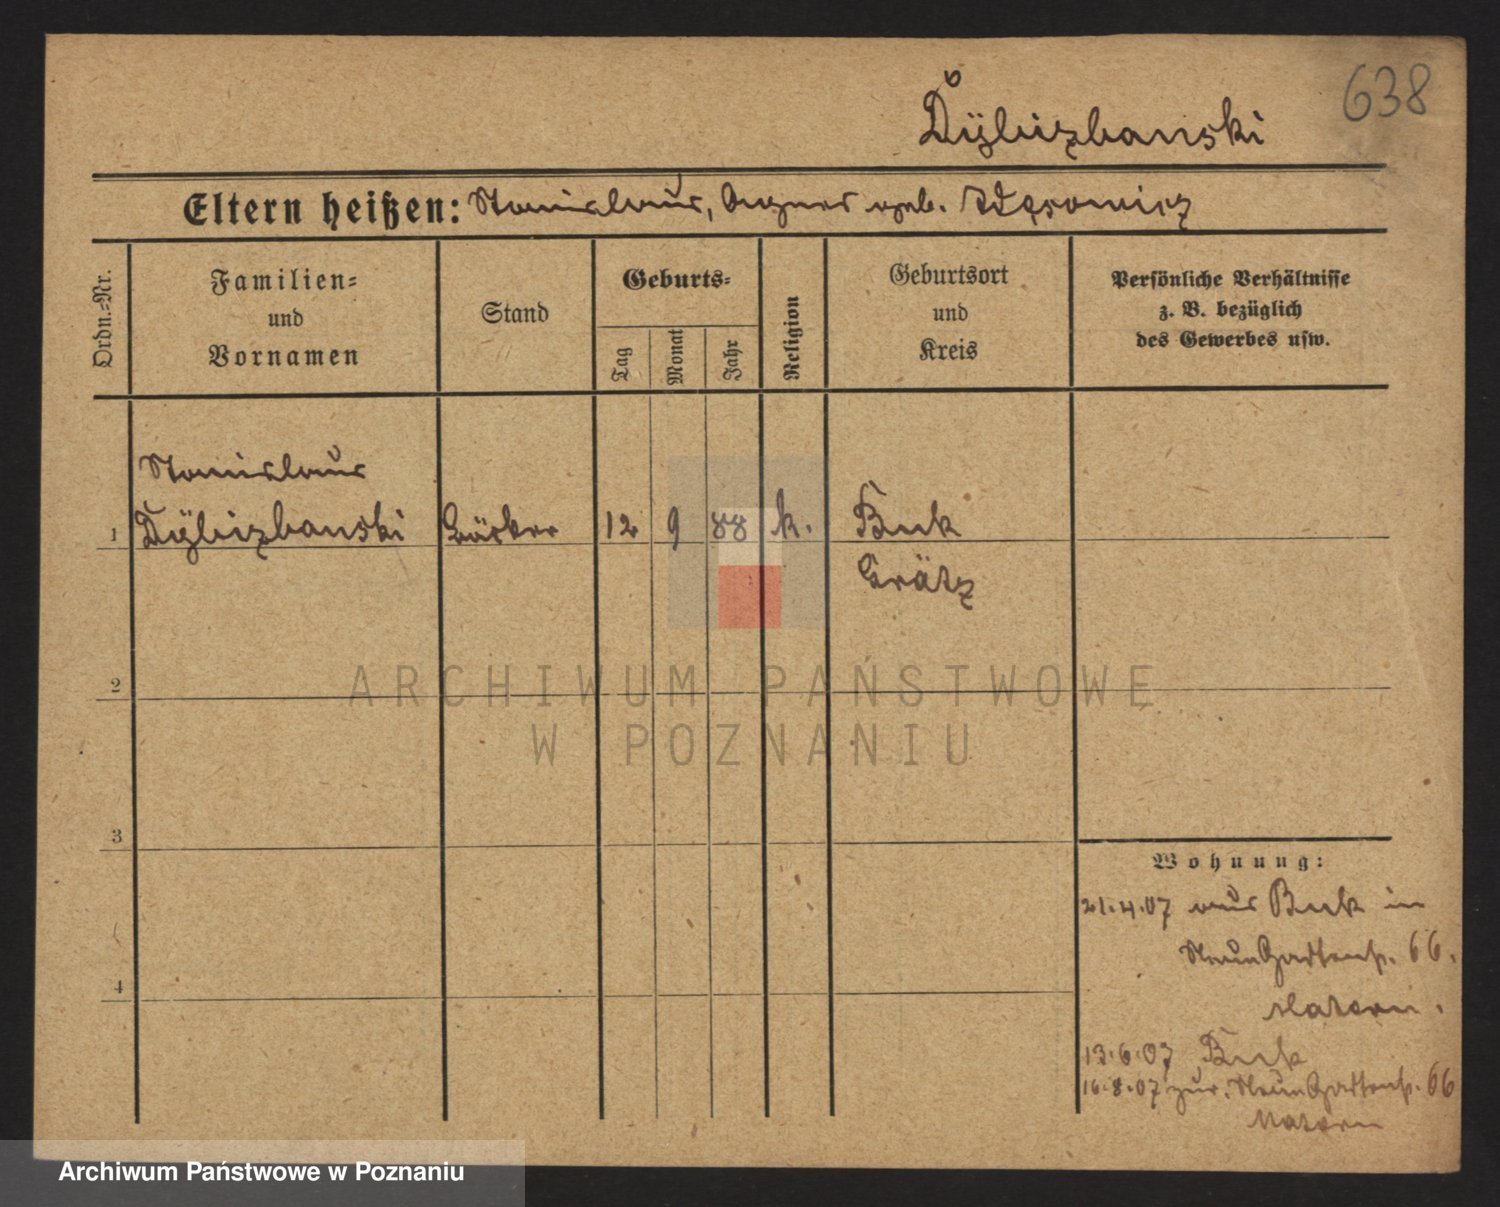 638
Dÿbizbanski
Eltern heißen: Stanislaus, Agnes geb.
Ordn.-Nr.
Familien-
und
Vornamen
Stand
Geburts-
Tag
Monat
Jahr
Religion
Geburtsort
und
Kreis
Persönliche Verhältnisse
z. B. bezüglich
des Gewerbes usw.
Stanislaus
1 Dÿbizbanski Bäcker 12 9 88 k. Buk
Grätz
2
3
4
Wohnung:
21.4.07 aus Buk in
66.
13.6.07 Buk
16.8.07 zur. 66
ARCHIWUM PAŃSTWOWE
W POZNANIU
Archiwum Państwowe w Poznaniu